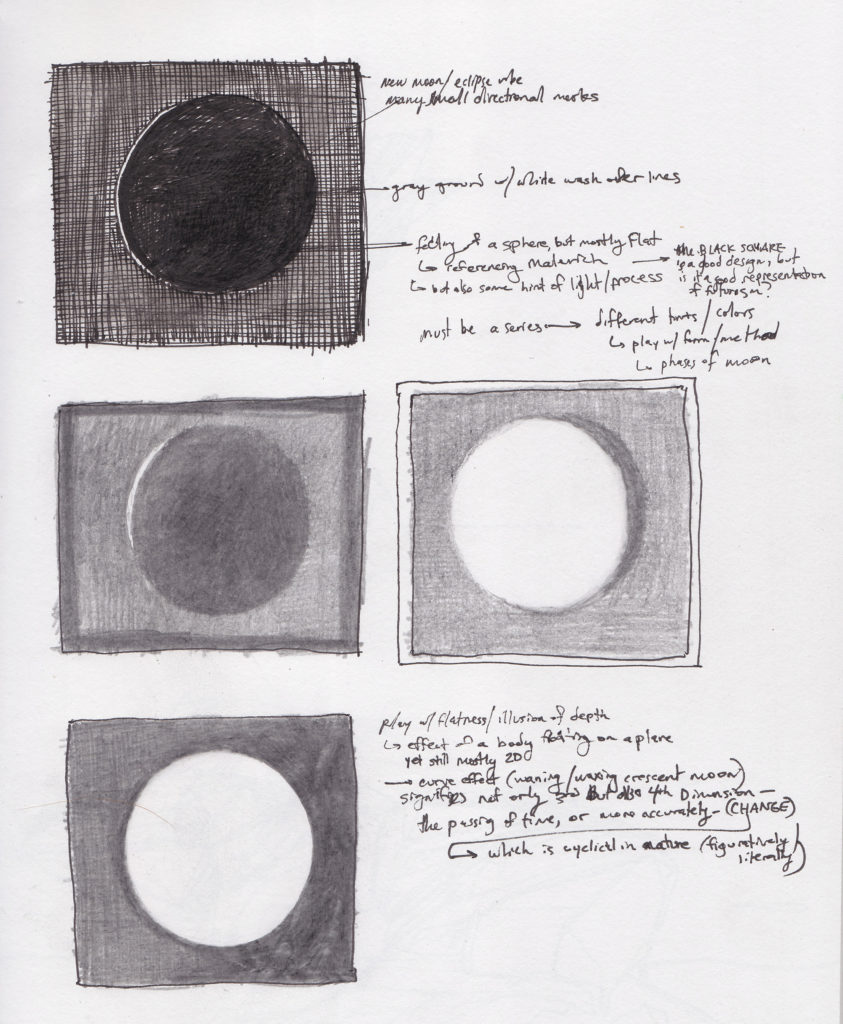 new moon/eclipse vibe
many small directional marks
gray ground w/ white wash under lines
feeling of a sphere, but mostly flat
↳ referencing Malevich → the BLACK SQUARE
is a good design, but
is it a good representation
of futurism?
↳ but also some hint of light/process
must be a series → different tints/colors
↳ play w/ form/method
↳ phases of moon
play w/ flatness/illusion of depth
↳ effect of a body floating on a plane
yet still mostly 2D
→ curve effect (waning/waxing crescent moon)
signifies not only 3D but also 4th Dimension –
the passing of time, or more accurately – (CHANGE)
↳ which is cyclical in nature (figuratively/
literally)